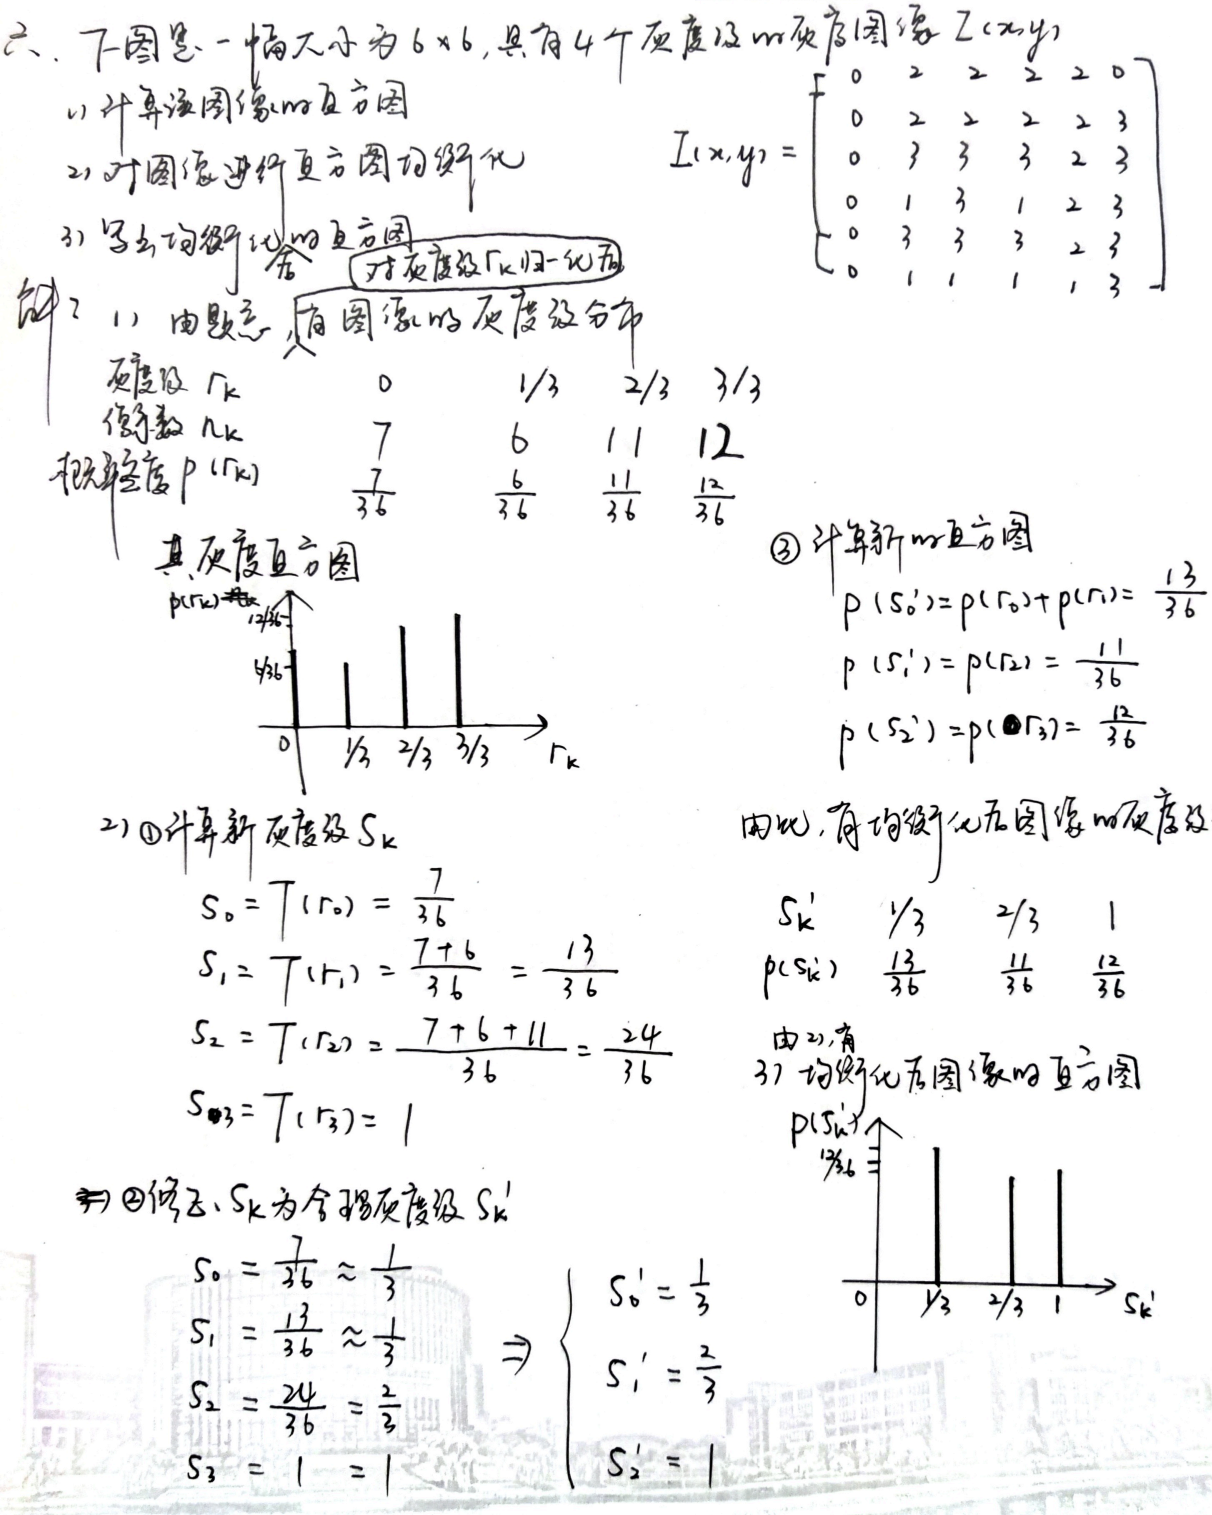 六、下图是一幅大小为6×6,具有4个灰度级的灰度图像I(x,y)
1) 计算该图像的直方图
2) 对图像进行直方图均衡化
3) 写出均衡化后的直方图
I(x,y) =
0 2 2 2 2 0
0 2 2 2 2 3
0 3 3 3 2 3
0 1 3 1 2 3
0 3 3 3 2 3
0 1 1 1 1 3
对灰度级rk归一化后
解: 1) 由题意,有图像的灰度级分布
灰度级 rk 0 1/3 2/3 3/3
像素数 nk 7 6 11 12
概率密度 p(rk) 7/36 6/36 11/36 12/36
其灰度直方图
p(rk)
12/36
6/36
0 1/3 2/3 3/3 rk
2) ①计算新灰度级 Sk
S0 = T(r0) = 7/36
S1 = T(r1) = (7+6)/36 = 13/36
S2 = T(r2) = (7+6+11)/36 = 24/36
S3 = T(r3) = 1
②修正 Sk为合理灰度级 Sk'
S0 = 7/36 ≈ 1/3
S1 = 13/36 ≈ 1/3
S2 = 24/36 = 2/3
S3 = 1 = 1
⇒
S0' = 1/3
S1' = 2/3
S2' = 1
③ 计算新的直方图
p(S0') = p(r0) + p(r1) = 13/36
p(S1') = p(r2) = 11/36
p(S2') = p(r3) = 12/36
由此,有均衡化后图像的灰度级
Sk' 1/3 2/3 1
p(Sk') 13/36 11/36 12/36
由2),有
3) 均衡化后图像的直方图
p(Sk')
12/36
0 1/3 2/3 1 Sk'